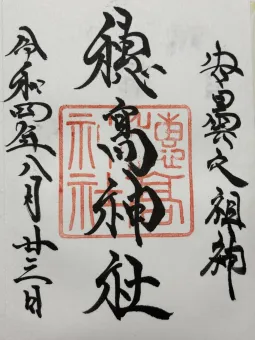 安曇野之祖神
穂高神社
令和四年八月廿三日
穂高神社